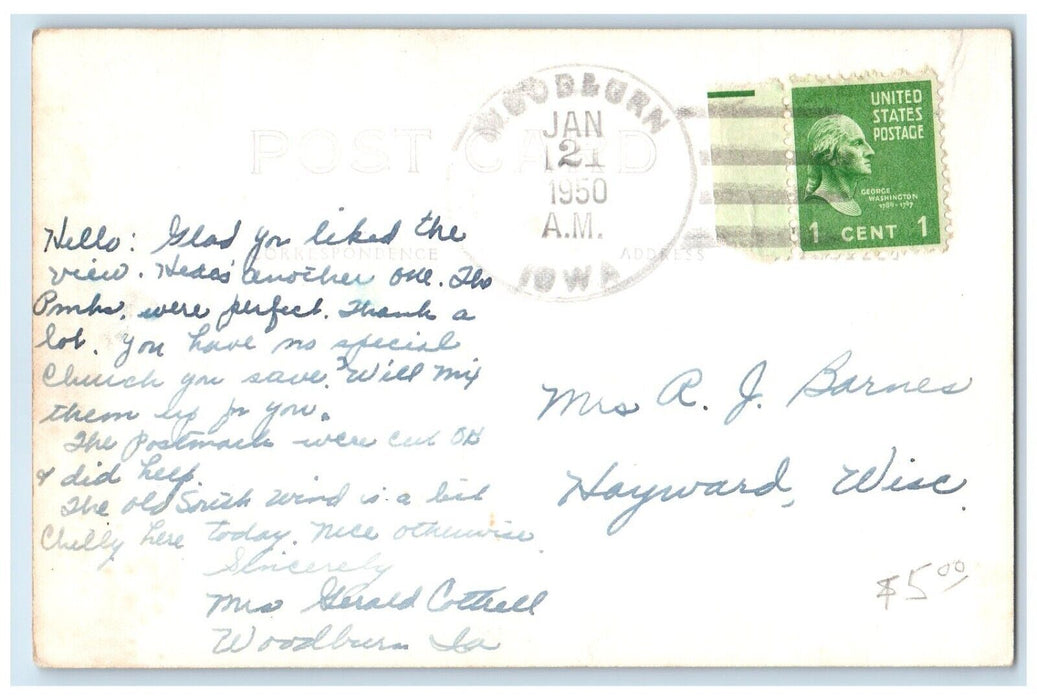 WOODBURN
JAN
21
1950
A.M.
IOWA
UNITED
STATES
POSTAGE
GEORGE
WASHINGTON
1789-1797
1 CENT 1
POST CARD
CORRESPONDENCE
ADDRESS
Hello: Glad you liked the
view. Here's another one. The
Pmks. were perfect. Thank a
lot. You have no special
Church you save? Will mix
them up for you.
The postmark were cut OK
& did help.
The old South Wind is a bit
Chilly here today. Nice otherwise
Sincerely
Mrs Gerald Cottrell
Woodburn Ia
Mrs R. J. Barnes
Hayward, Wisc.
$5.00